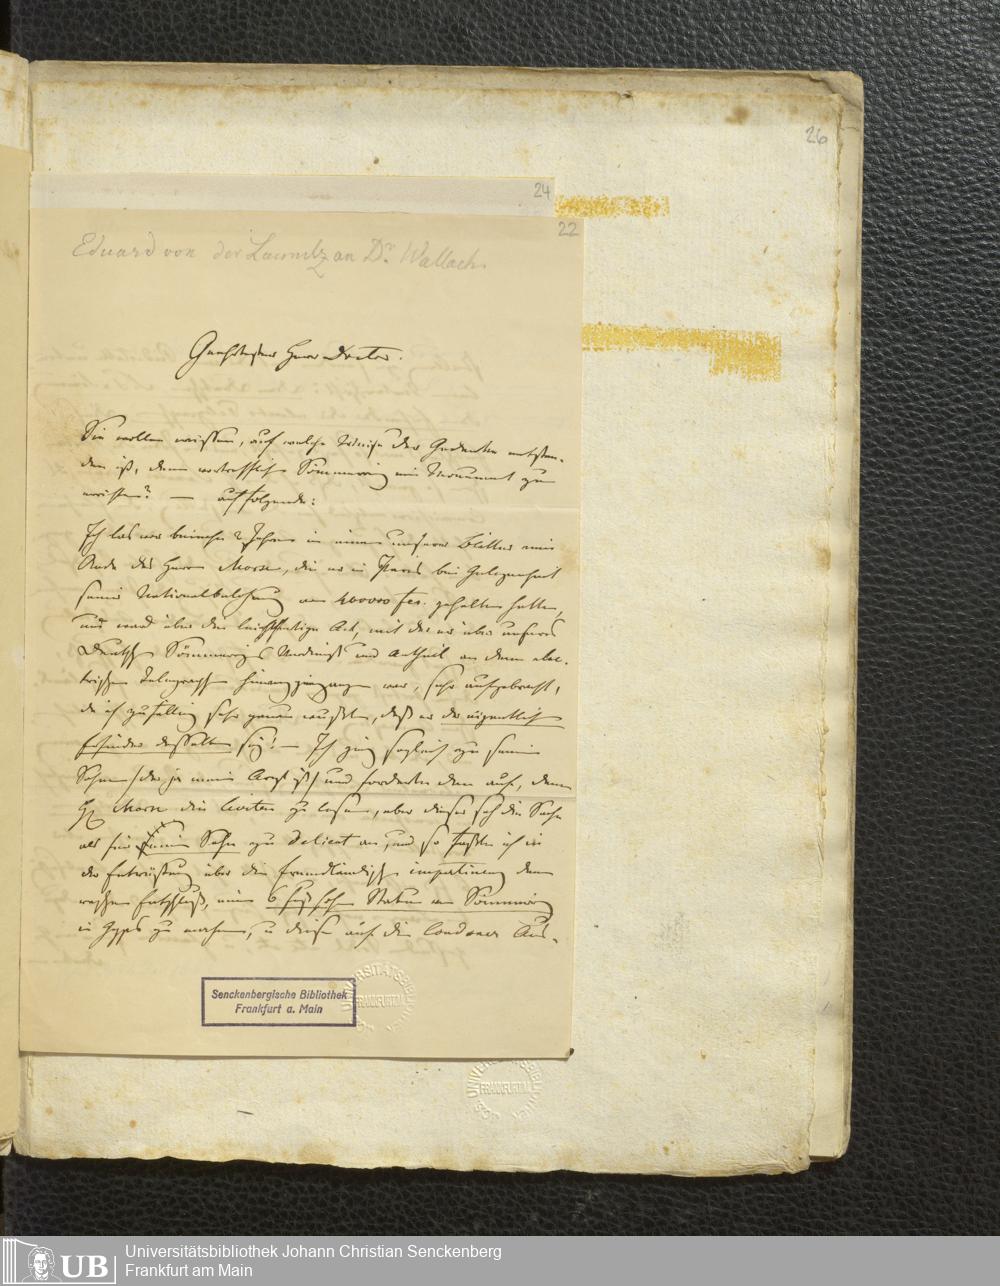 26
24
22
Eduard von der Launitz an Dr. Wallach.
Geehrtester Herr Doctor.
Sie wollen wissen, auf welche Weise der Gedanke entstan-
den ist, dem vortrefflichen Sömmerring ein Monument zu
errichten? — auf folgende:
Ich las vor beinahe 2 Jahren in einem unserer Blätter eine
Rede des Herrn Morse, die er in Paris bei Gelegenheit
seiner Nationalbelohnung von 400000 frcs. gehalten hatte,
und ward über die leichtfertige Art, mit der er über unseres
Deutschen Sömmerrings Verdienst und Antheil an dem elec-
trischen Telegraphen hinweggegangen war, sehr aufgebracht,
da ich zufällig sehr genau wußte, daß er der eigentliche
Erfinder desselben sey! — Ich ging sogleich zu seinem
Sohne (der ja mein Arzt ist) und forderte den auf, dem
Hr. Morse die Leviten zu lesen, aber dieser sah die Sache
als für seinen Sohn zu delicat an, und so faßte ich in
der Entrüstung über die fremdländische impertinenz den
raschen Entschluß, eine 6 Fuß hohe Statue von Sömmerring
in Gyps zu machen, u diese auf die Londoner Aus-
Senckenbergische Bibliothek
Frankfurt a. Main
UNIVERSITÄTSBIBLIOTHEK
FRANKFURT/M.
UB
Universitätsbibliothek Johann Christian Senckenberg
Frankfurt am Main